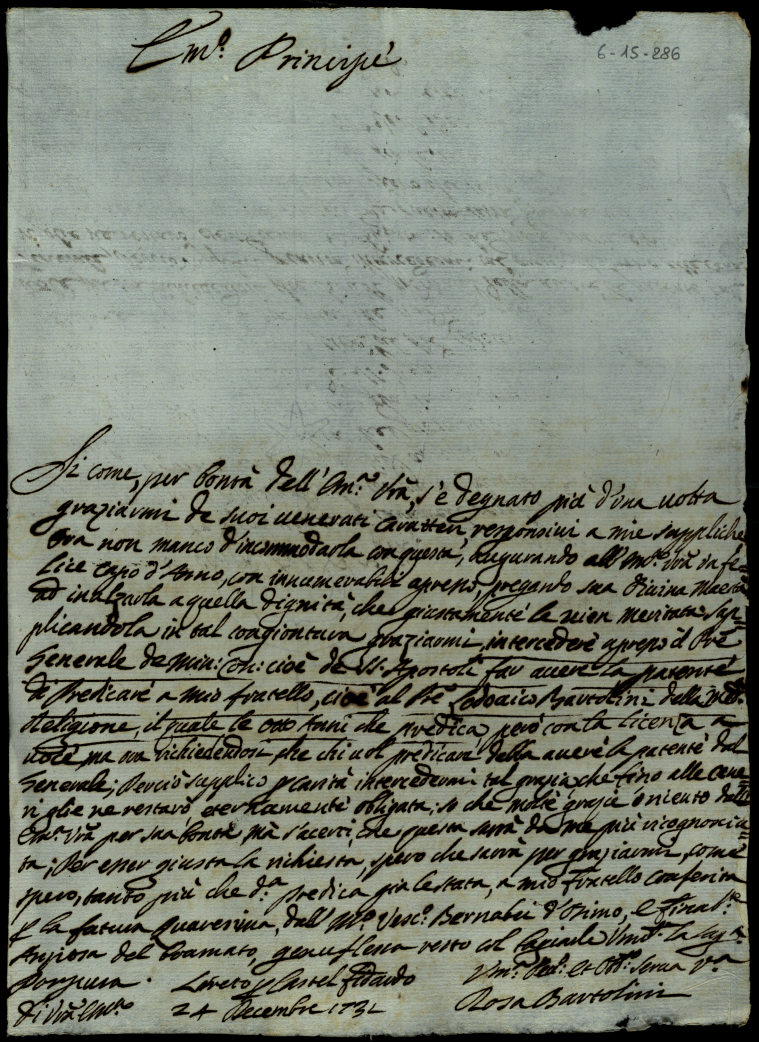 6-15-286
Em.º Principe
Si come, per bontà dell'Em.ª Vrã, s'è degnato più d'una uolta
graziarmi de suoi uenerati caratteri responsiui a mie suppliche
Ora non manco d'incommodarla con questa, augurando all'Em.ª Vrã un fe=
lice capo d'Anno, con innumerabili apresso, pregando sua diuina Maestà
ad inalzarla a quella dignità, che giustamente le uien meritata: sup=
plicandola in tal congiontura graziarmi, intercedere apresso il Pre
Generale de Min: Con: cioè de SS. Apostoli far auere la patente
di Predicare a mio fratello, cioè al Pre Lodouico Bartolini della med.ª
Religione, il quale le otto Anni che predica, però con la licenza a
uoce, ma ora richiedendosi, che chi uol predicare debba auere la patente dal
Generale; Perciò supplico p carità intercedermi tal grazia, che fino alle cene=
ri glie ne restarò eternamente obligata; so che molte grazie ò riceuto dall'
Em.ª Vrã per sua bontà, mà s'acerti, che questa sarà da me più ricognosciu=
ta; Per esser giusta la richiesta, spero che sarrà per graziarmi, come
spero, tanto più che d.ª predica gia lè stata, a mio fratello conferita
p la futura Quaresima, dall' M.r Vesc.º Bernabei d'Osimo, e
Anziosa del bramato, genuflessa resto col baciarle Um.te la Sag.ª
Porpora.
Di Vrã Em.ª
Loreto p Castel Fidardo
24 Decembre 1731
Um.ª Deu.ª et Obb.ª Serua v.ª
Rosa Bartolini